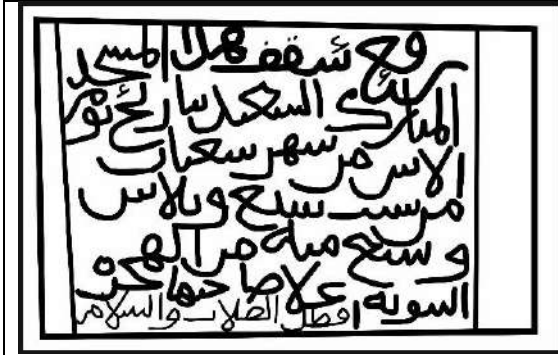 رفع شقف هذا المسجد
المبارك السعيد بتاريخ يوم
الاثنين من شهر شعبان
من سنت سبع وثلاثين
وسبع مية من الهجرة
النبوية علا صاحبها
افضل الصلات والسلام